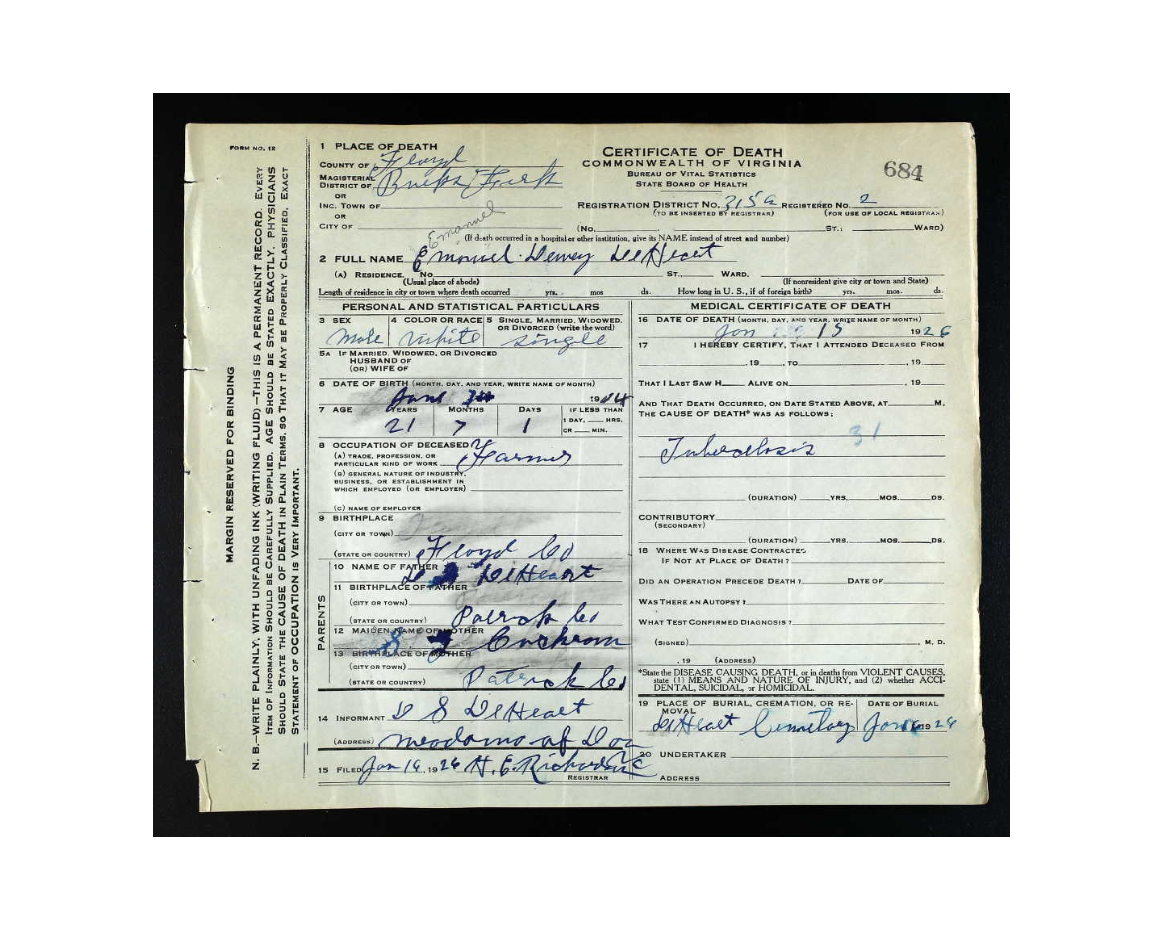 FORM NO. 12
MARGIN RESERVED FOR BINDING
N. B.—WRITE PLAINLY, WITH UNFADING INK (WRITING FLUID)—THIS IS A PERMANENT RECORD. EVERY
ITEM OF INFORMATION SHOULD BE CAREFULLY SUPPLIED. AGE SHOULD BE STATED EXACTLY. PHYSICIANS
SHOULD STATE THE CAUSE OF DEATH IN PLAIN TERMS, SO THAT IT MAY BE PROPERLY CLASSIFIED. EXACT
STATEMENT OF OCCUPATION IS VERY IMPORTANT.
1 PLACE OF DEATH
COUNTY OF Floyd
MAGISTERIAL
DISTRICT OF Burks Fork
OR
INC. TOWN OF
OR
CITY OF
CERTIFICATE OF DEATH
COMMONWEALTH OF VIRGINIA
BUREAU OF VITAL STATISTICS
STATE BOARD OF HEALTH
684
REGISTRATION DISTRICT NO. 315a REGISTERED NO. 2
(TO BE INSERTED BY REGISTRAR) (FOR USE OF LOCAL REGISTRAR)
(No. ST.; WARD)
(If death occurred in a hospital or other institution, give its NAME instead of street and number)
Emanuel
2 FULL NAME Emonuel Dewey DeHeart
(A) RESIDENCE. No. ST., WARD.
(Usual place of abode) (If nonresident give city or town and State)
Length of residence in city or town where death occurred yrs. mos ds. How long in U. S., if of foreign birth? yrs. mos. ds.
PERSONAL AND STATISTICAL PARTICULARS
3 SEX 4 COLOR OR RACE 5 SINGLE, MARRIED, WIDOWED, OR DIVORCED (write the word)
male white single
5A IF MARRIED, WIDOWED, OR DIVORCED
HUSBAND OF
(OR) WIFE OF
6 DATE OF BIRTH (MONTH, DAY, AND YEAR, WRITE NAME OF MONTH)
June 19
7 AGE YEARS MONTHS DAYS IF LESS THAN
1 DAY, HRS.
OR MIN.
21 7 1
8 OCCUPATION OF DECEASED
(A) TRADE, PROFESSION, OR
PARTICULAR KIND OF WORK Farmer
(B) GENERAL NATURE OF INDUSTRY,
BUSINESS, OR ESTABLISHMENT IN
WHICH EMPLOYED (OR EMPLOYER)
(C) NAME OF EMPLOYER
9 BIRTHPLACE
(CITY OR TOWN)
(STATE OR COUNTRY) Floyd Co
PARENTS
10 NAME OF FATHER D DeHeart
11 BIRTHPLACE OF FATHER
(CITY OR TOWN)
(STATE OR COUNTRY) Patrick Co
12 MAIDEN NAME OF MOTHER Cockrom
13 BIRTHPLACE OF MOTHER
(CITY OR TOWN)
(STATE OR COUNTRY) Patrick Co
14 INFORMANT D S DeHeart
(ADDRESS) meadows of Dan
15 FILED Jan 16, 1926 H. E. Richardson
REGISTRAR
MEDICAL CERTIFICATE OF DEATH
16 DATE OF DEATH (MONTH, DAY, AND YEAR, WRITE NAME OF MONTH)
Jan 15 1926
17 I HEREBY CERTIFY, THAT I ATTENDED DECEASED FROM
, 19 , TO , 19
THAT I LAST SAW H ALIVE ON , 19
AND THAT DEATH OCCURRED, ON DATE STATED ABOVE, AT M.
THE CAUSE OF DEATH* WAS AS FOLLOWS:
31
Tuberculosis
(DURATION) YRS. MOS. DS.
CONTRIBUTORY
(SECONDARY)
(DURATION) YRS. MOS. DS.
18 WHERE WAS DISEASE CONTRACTED
IF NOT AT PLACE OF DEATH?
DID AN OPERATION PRECEDE DEATH? DATE OF
WAS THERE AN AUTOPSY?
WHAT TEST CONFIRMED DIAGNOSIS?
(SIGNED) M. D.
, 19 (ADDRESS)
*State the DISEASE CAUSING DEATH, or in deaths from VIOLENT CAUSES,
state (1) MEANS AND NATURE OF INJURY, and (2) whether ACCI-
DENTAL, SUICIDAL, or HOMICIDAL.
19 PLACE OF BURIAL, CREMATION, OR RE-
MOVAL
DATE OF BURIAL
DeHeart Cemetary Jan 16 1926
20 UNDERTAKER
ADDRESS